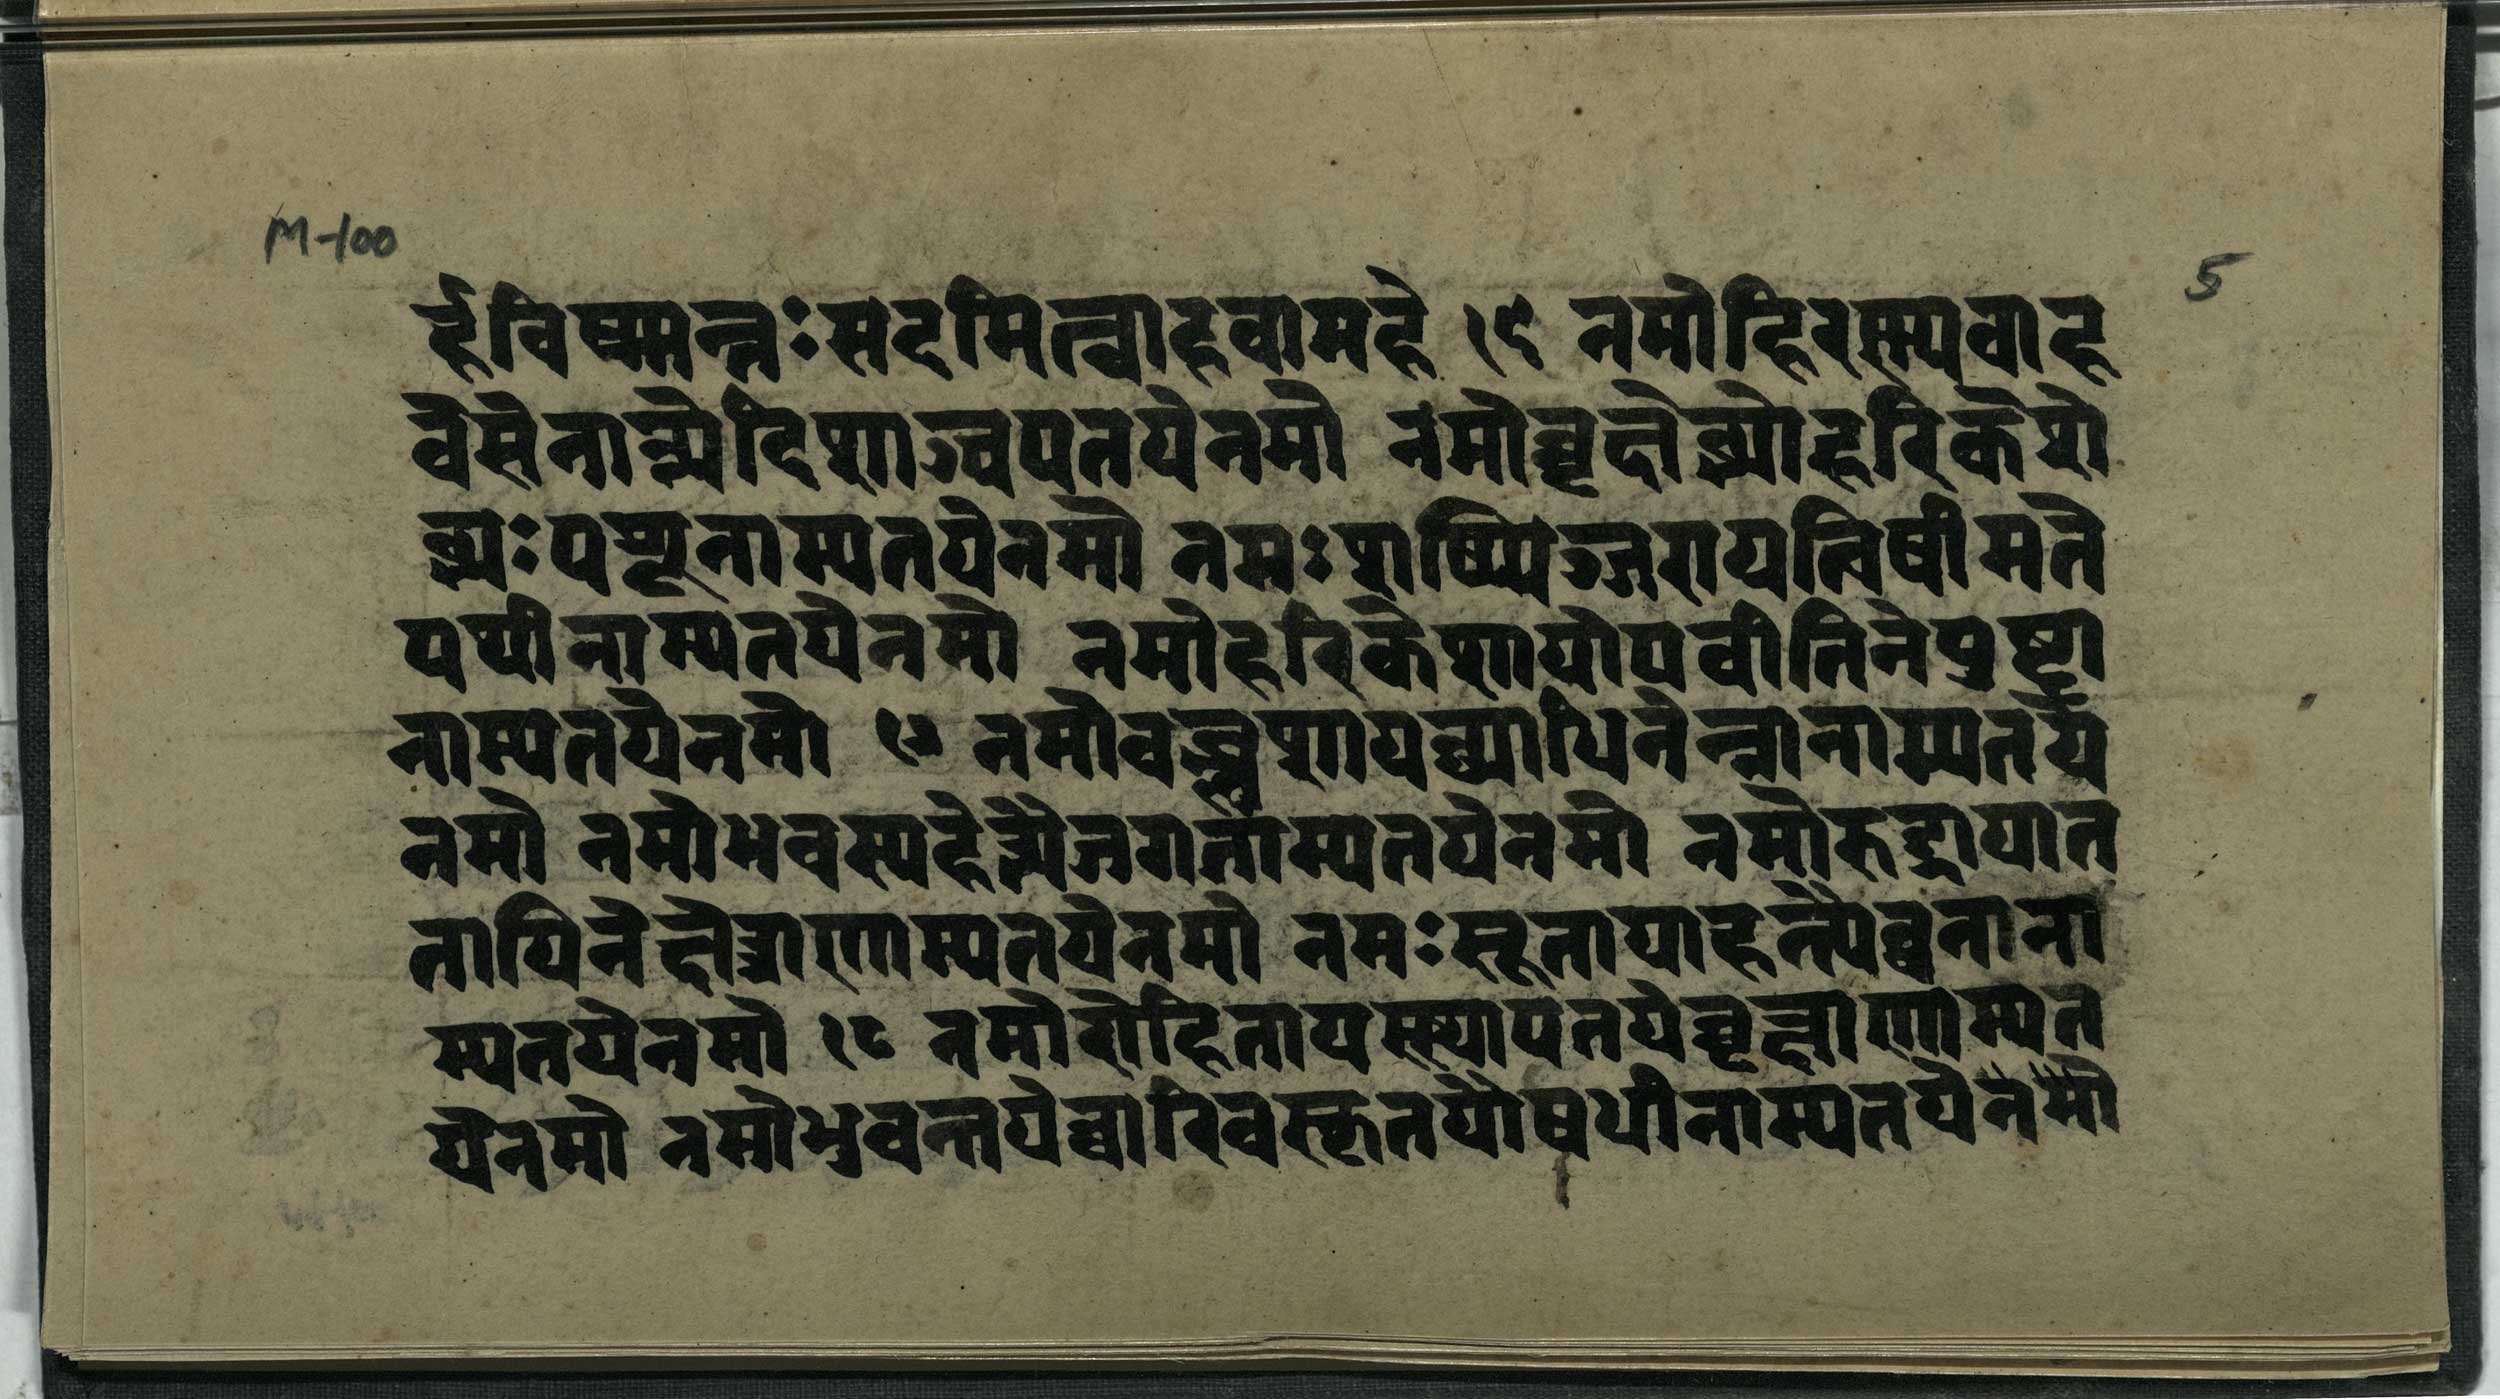 M-100
5
र्हविष्मन्तः सदमित्त्वा हवामहे १६ नमो हिरण्यवाह
वे सेनान्न्ये दिशाञ्च पतये नमो नमो व्वृक्षेब्भ्यो हरिकेशे
ब्भ्यः पशूनाम्पतये नमो नमः शष्पिञ्जराय त्विषीमते
पथीनाम्पतये नमो नमो हरिकेशायोपवीतिने पुष्टा
नाम्पतये नमो १७ नमो बब्भ्लुशाय व्याधिनेन्नानाम्पतये
नमो नमो भवस्य हेत्यै जगताम्पतये नमो नमो रुद्रायात
तायिने क्षेत्राणाम्पतये नमो नमः सूतायाहन्त्यै व्वनाना
म्पतये नमो १८ नमो रोहिताय स्थपतये व्वृक्षाणाम्पत
ये नमो नमो भुवन्तये व्वारिवस्कृतायौषधीनाम्पतये नमो